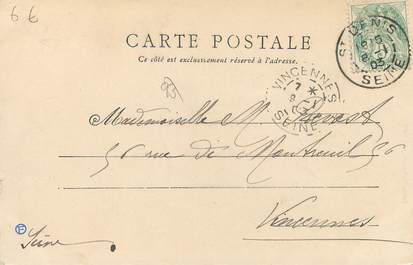 66
CARTE POSTALE
Ce côté est exclusivement réservé à l'adresse.
ST DENIS
SEINE
03
VINCENNES
7
SEINE
Mademoiselle M.
56 rue de Montreuil 56
Vincennes
Seine